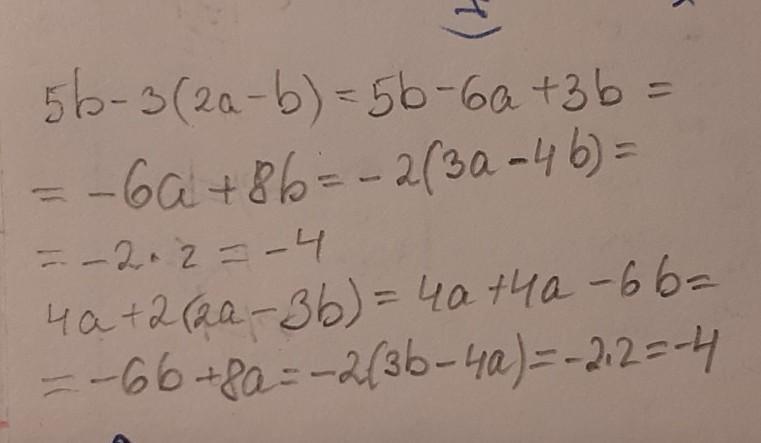 5b-3(2a-b)=5b-6a+3b=
=-6a+8b=-2(3a-4b)=
=-2·2=-4
4a+2(2a-3b)=4a+4a-6b=
=-6b+8a=-2(3b-4a)=-2·2=-4